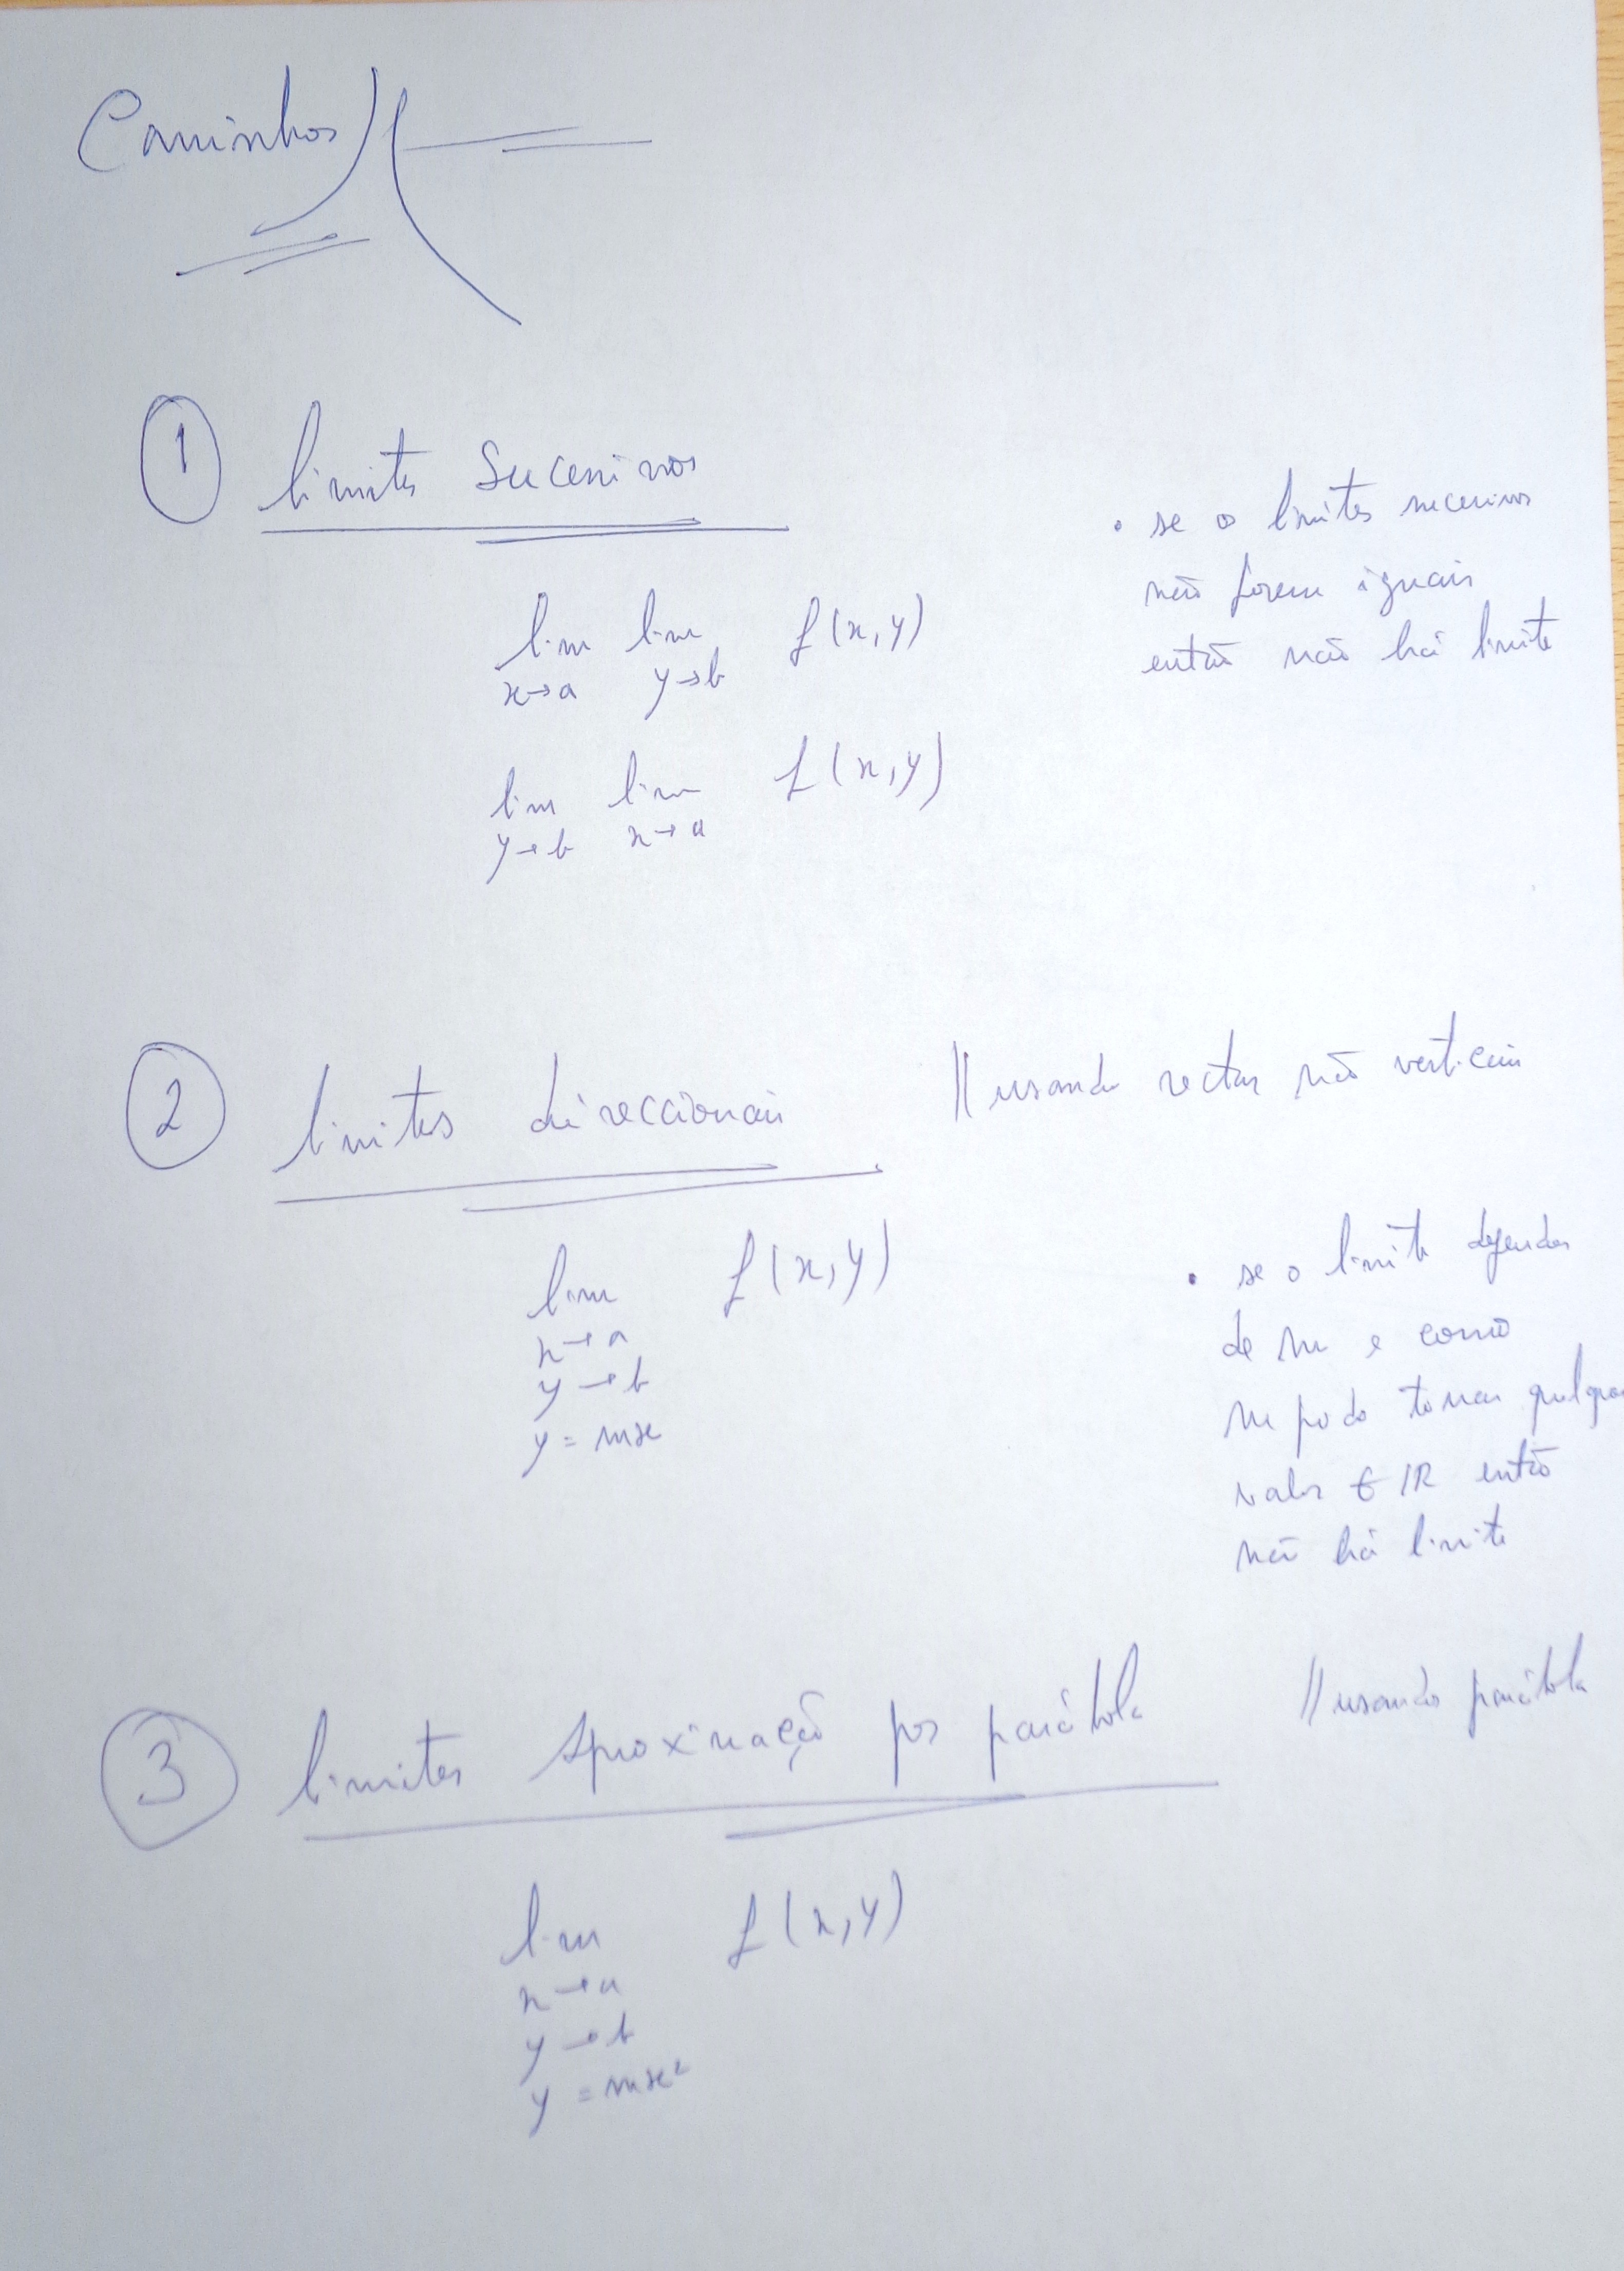 Caminhos
1 limites sucessivos
lim lim f(x,y)
x→a y→b
lim lim f(x,y)
y→b x→a
• se os limites sucessivos
não forem iguais
então não há limite
2 limites direccionais // usando rectas não verticais
lim f(x,y)
x→a
y→b
y = mx
• se o limite depender
de m e como
m pode tomar qualquer
valor ∈ IR então
não há limite
3 limites Aproximação por parábola // usando parábola
lim f(x,y)
x→a
y→b
y = mx²